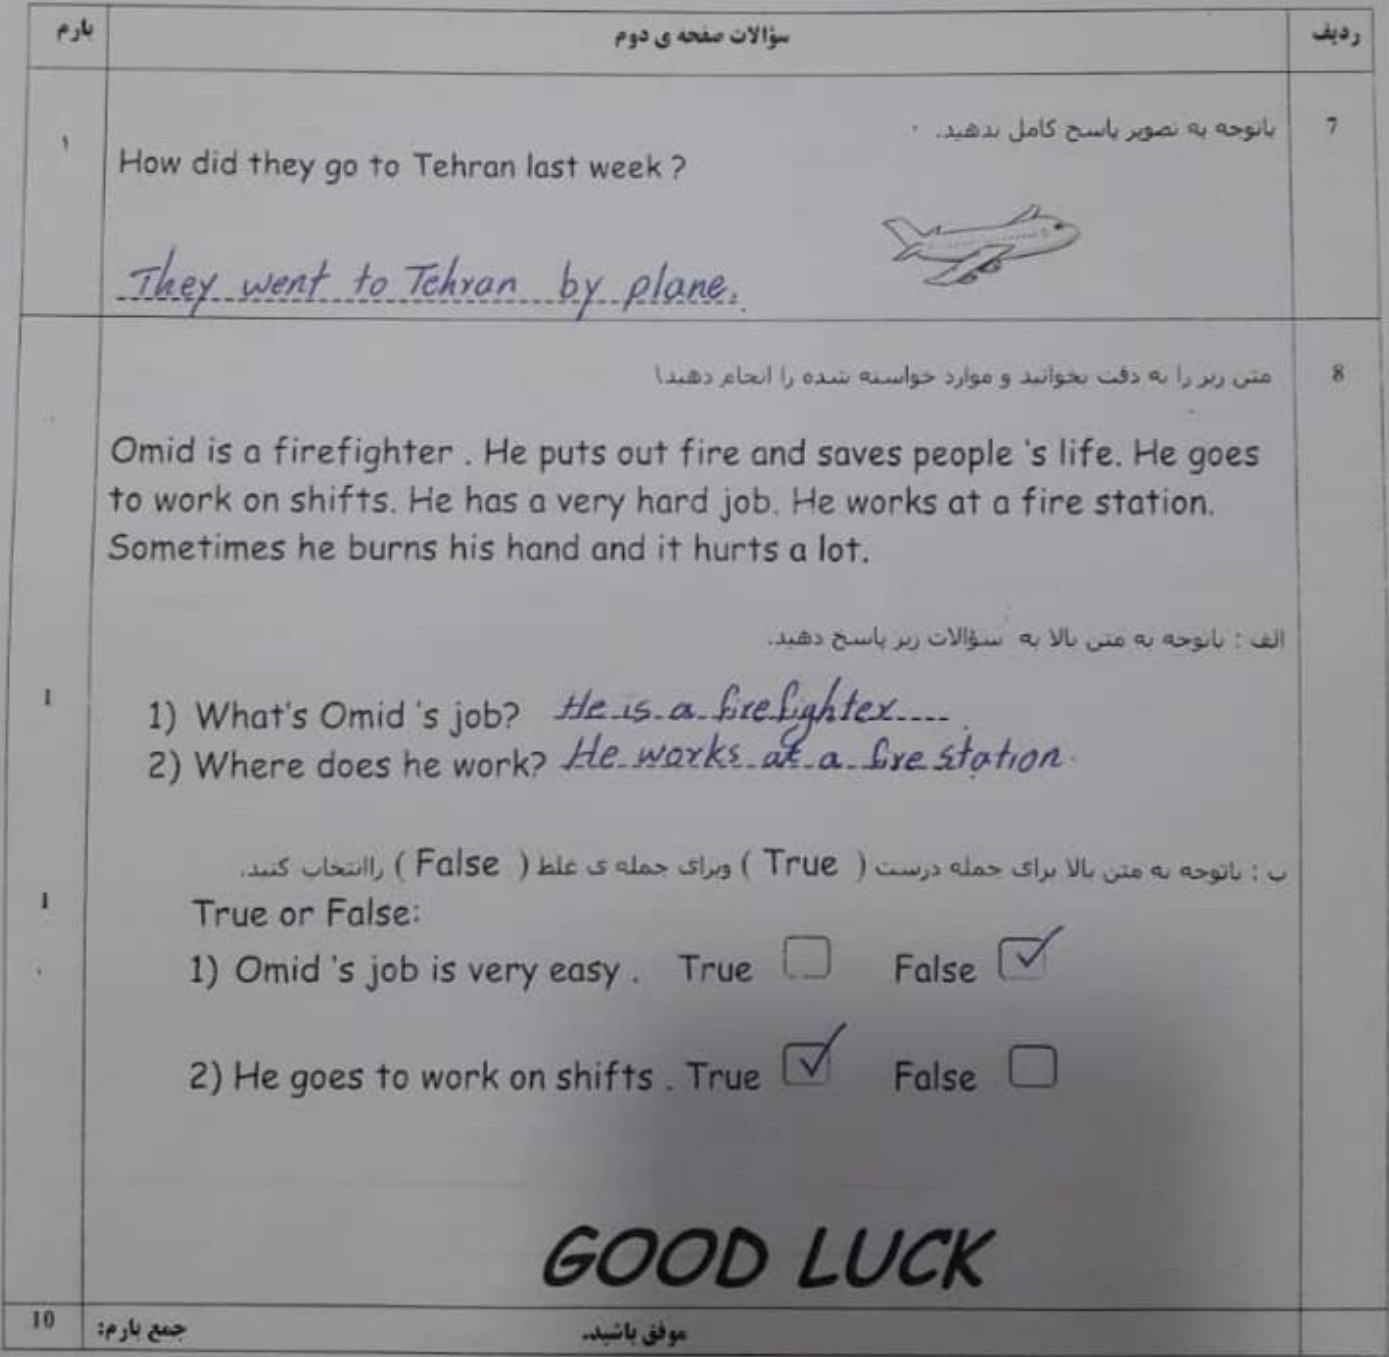 ردیف سؤالات صفحه ی دوم بارم
7 باتوجه به تصویر پاسخ کامل بدهید.
۱
How did they go to Tehran last week ?
They went to Tehran by plane.
8 متن زیر را به دقت بخوانید و موارد خواسته شده را انجام دهید!
Omid is a firefighter . He puts out fire and saves people 's life. He goes
to work on shifts. He has a very hard job. He works at a fire station.
Sometimes he burns his hand and it hurts a lot.
الف : باتوجه به متن بالا به سؤالات زیر پاسخ دهید.
1
1) What's Omid 's job? He is a firefighter
2) Where does he work? He works at a fire station.
ب : باتوجه به متن بالا برای جمله درست ( True ) وبرای جمله ی غلط ( False ) راانتخاب کنید.
1
True or False:
1) Omid 's job is very easy . True False
2) He goes to work on shifts . True False
GOOD LUCK
موفق باشید. جمع بارم: 10